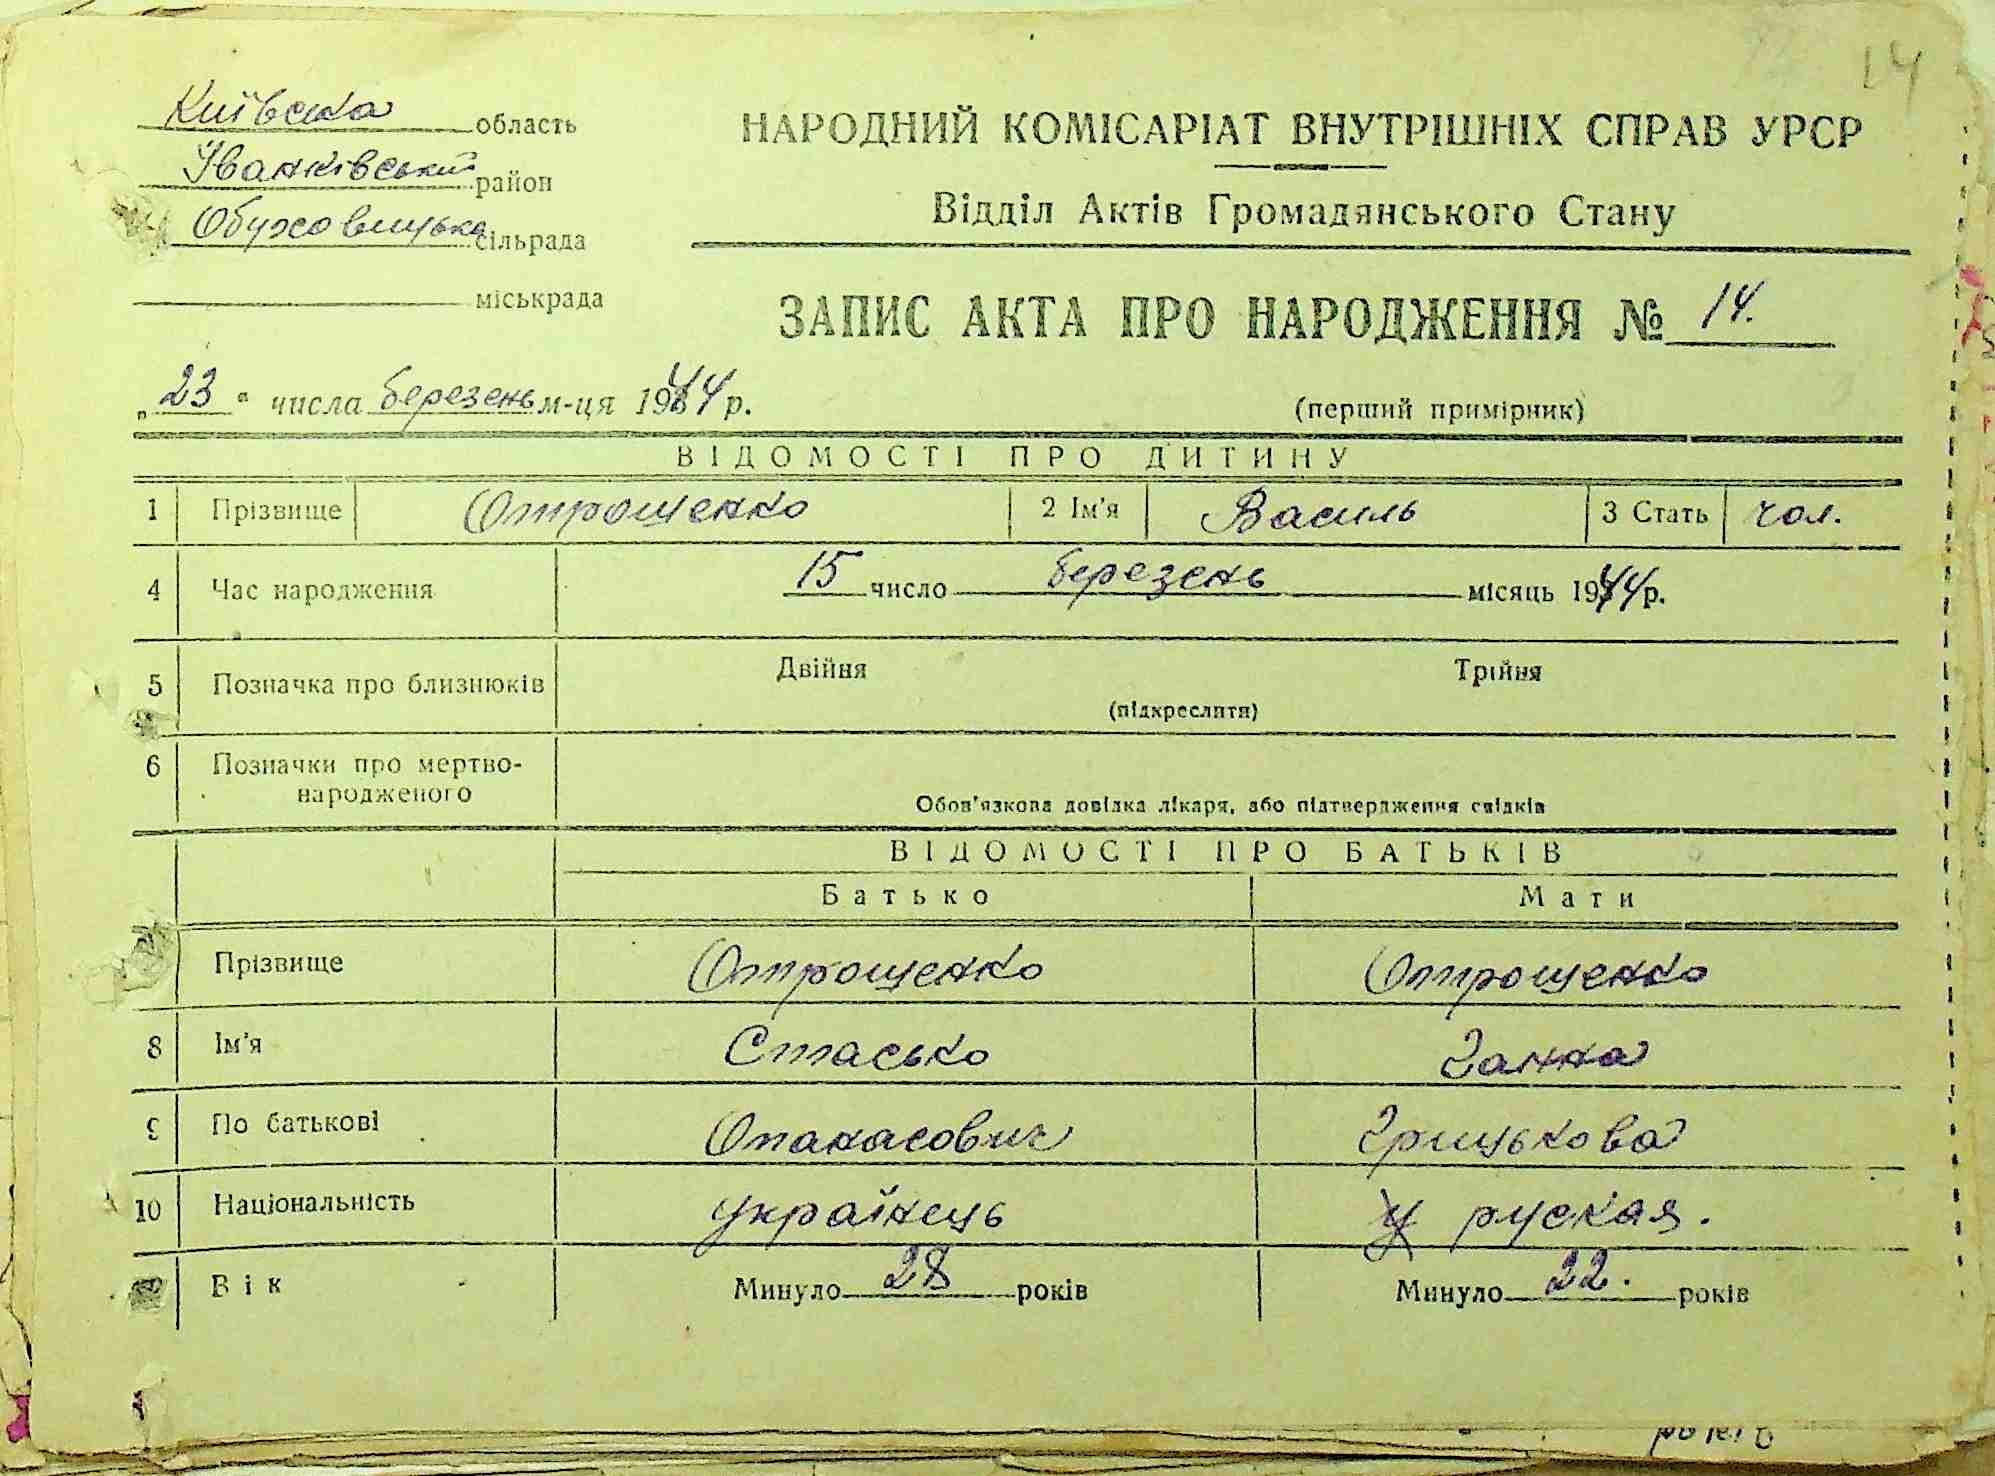 14
Київська область
Іванківський район
Обуховицька сільрада
міськрада
НАРОДНИЙ КОМІСАРІАТ ВНУТРІШНІХ СПРАВ УРСР
Відділ Актів Громадянського Стану
ЗАПИС АКТА ПРО НАРОДЖЕННЯ № 14.
„23" числа березень м-ця 1944 р.
(перший примірник)
ВІДОМОСТІ ПРО ДИТИНУ
1 Прізвище Отрощенко 2 Ім'я Василь 3 Стать чол.
4 Час народження 15 число березень місяць 1944 р.
5 Позначка про близнюків Двійня Трійня
(підкреслити)
6 Позначки про мертво-
народженого
Обов'язкова довідка лікаря, або підтвердження свідків
ВІДОМОСТІ ПРО БАТЬКІВ
Батько Мати
Прізвище Отрощенко Отрощенко
8 Ім'я Стасько Ганна
9 По батькові Опанасович Грицькова
10 Національність українець у руская.
Вік Минуло 28 років Минуло 22. років